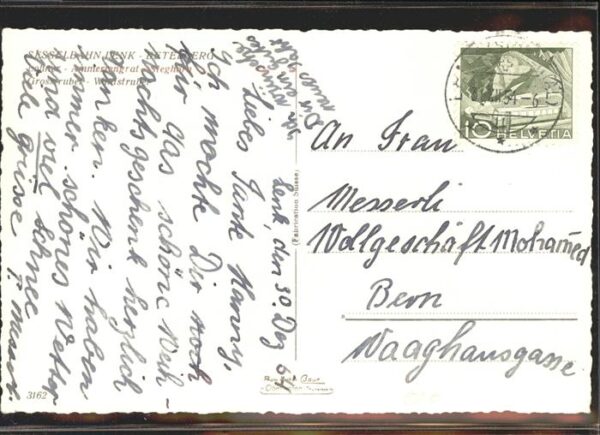 SESSELBAHN LENK - BETELBERG
Lenk, den 30. Dez. 54
Liebes Tante Hanny,
Ich möchte Dir noch
für das schöne Weih-
nachtsgeschenk herzlich
danken. Wir haben
immer schönes Wetter
und viel Schnee
Viele Grüsse
(Fabrication Suisse)
3162
15 HELVETIA
An Frau
Messerli
Wollgeschäft Mohamed
Bern
Waaghausgasse